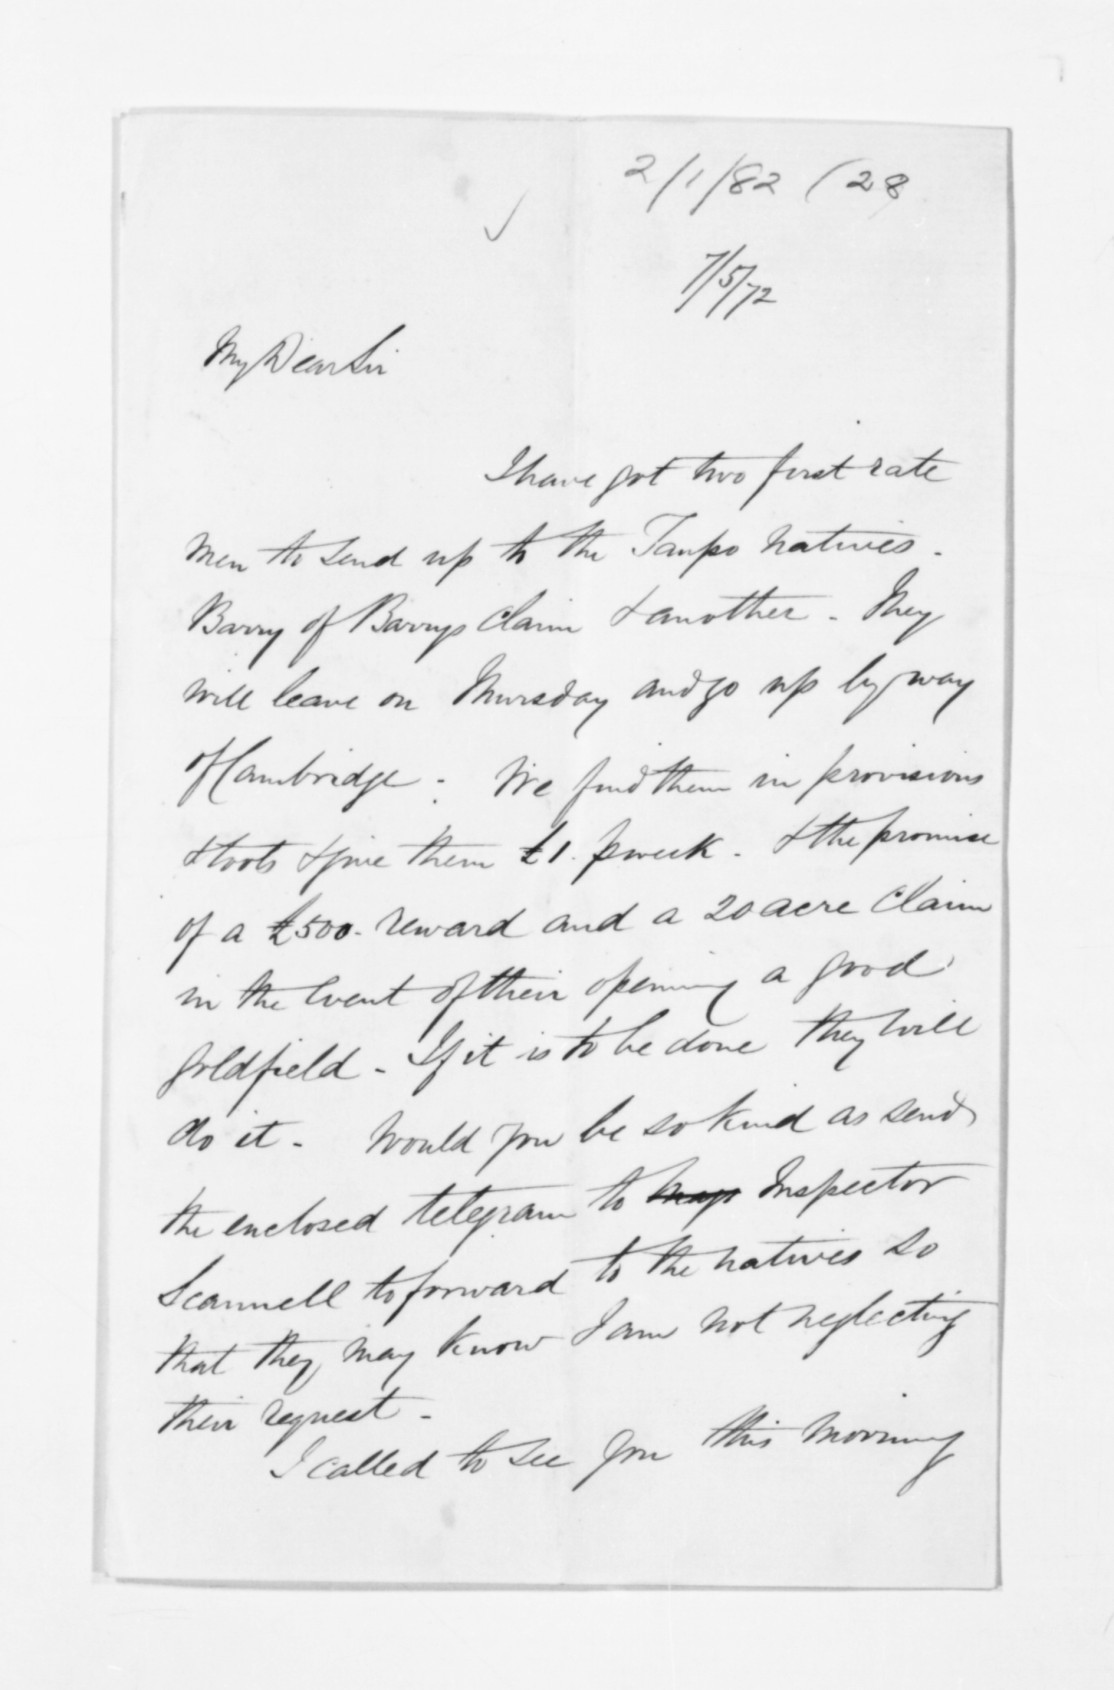 2/1/82 (28
7/5/72
My Dear Sir
I have got two first rate
men to send up to the Taupo natives -
Barry of Barrys claim & another - They
will leave on Thursday and go up by way
of Cambridge - We find them in provisions
& tools & give them £1. p week - & the promise
of a £500. reward and a 20 acre claim
in the event of their opening a good
goldfield - If it is to be done they will
do it - Would you be so kind as send
the enclosed telegram to Inspector
Scannell to forward to the natives so
that they may know I am not neglecting
their request -
I called to see you this morning